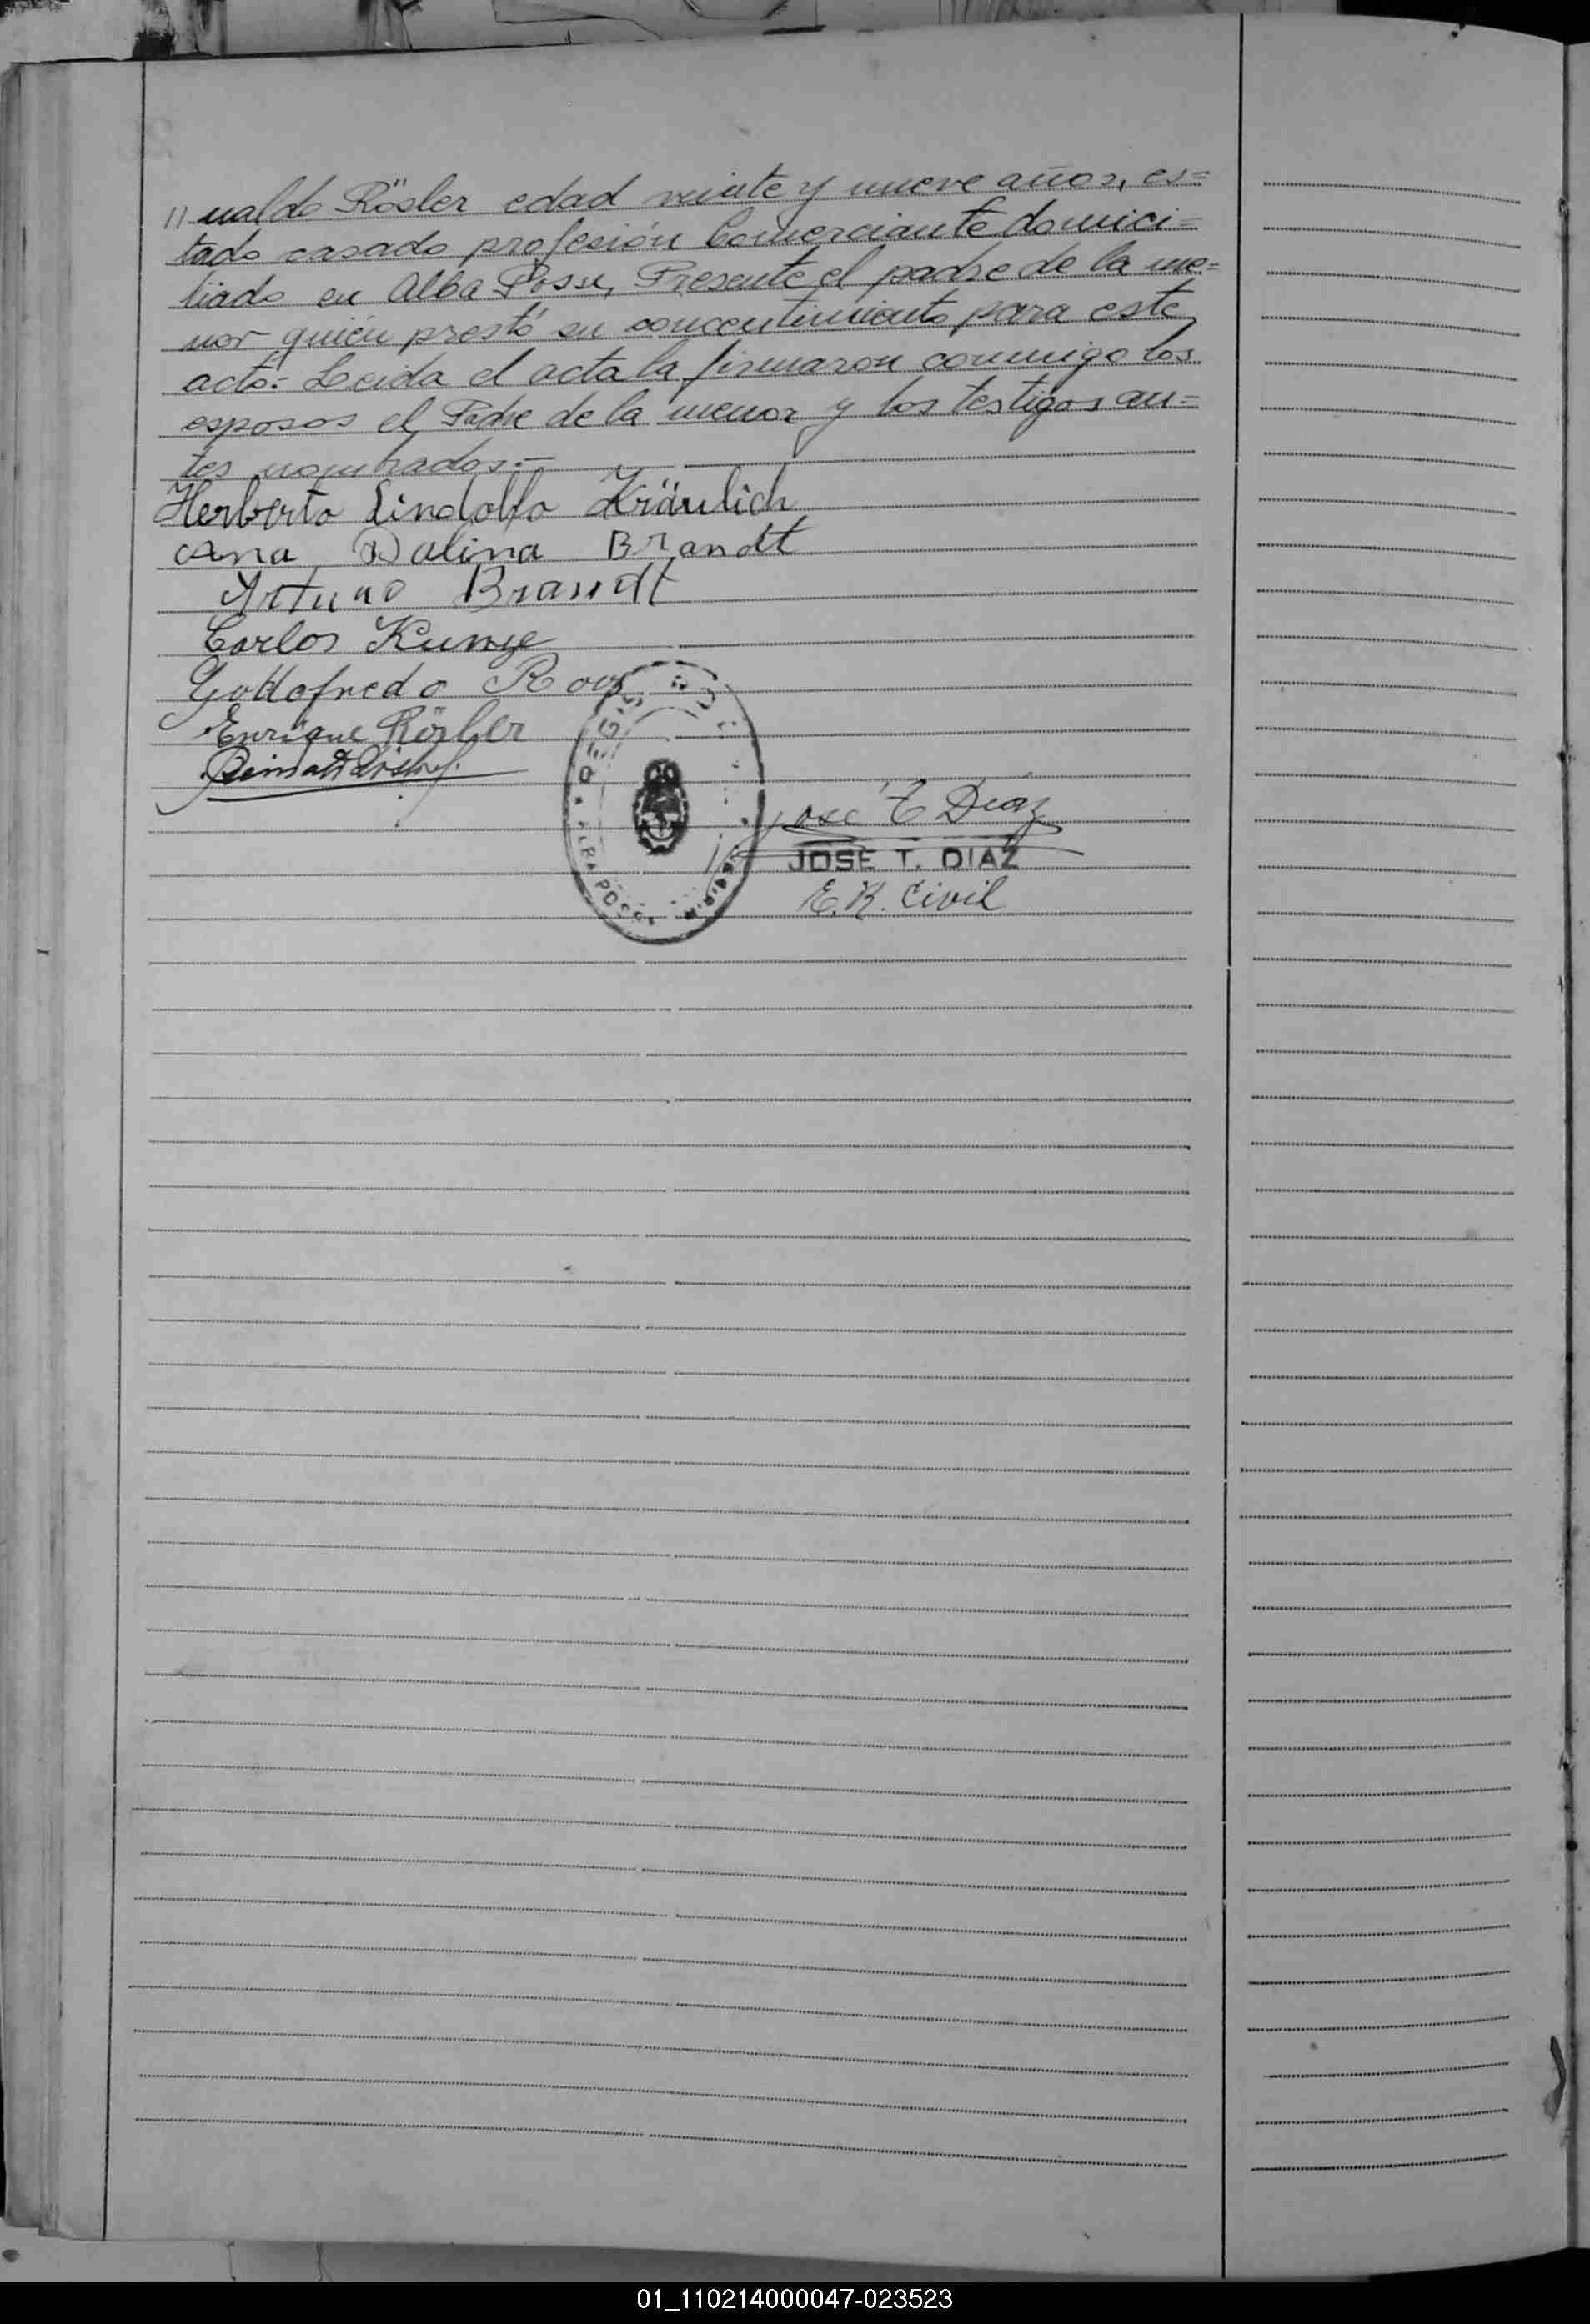 // naldo Rösler edad veinte y nueve años, es=
tado casado profesión Comerciante domici=
liado en Alba Posse, Presente el padre de la me=
nor quién prestó su concentimiento para este
acto.- Leida el acta la firmaron conmigo los
esposos el Padre de la menor y los testigos an=
tes nombrados.-
Herberto Lindolfo Kräulich
Ana Dalina Brandt
Arturo Brandt
Carlos Kunze
Gottofredo Roos
Enrique Rösler
Jose T Diaz
JOSE T. DIAZ
E. R. Civil
ALBA POSSE
01_110214000047-023523